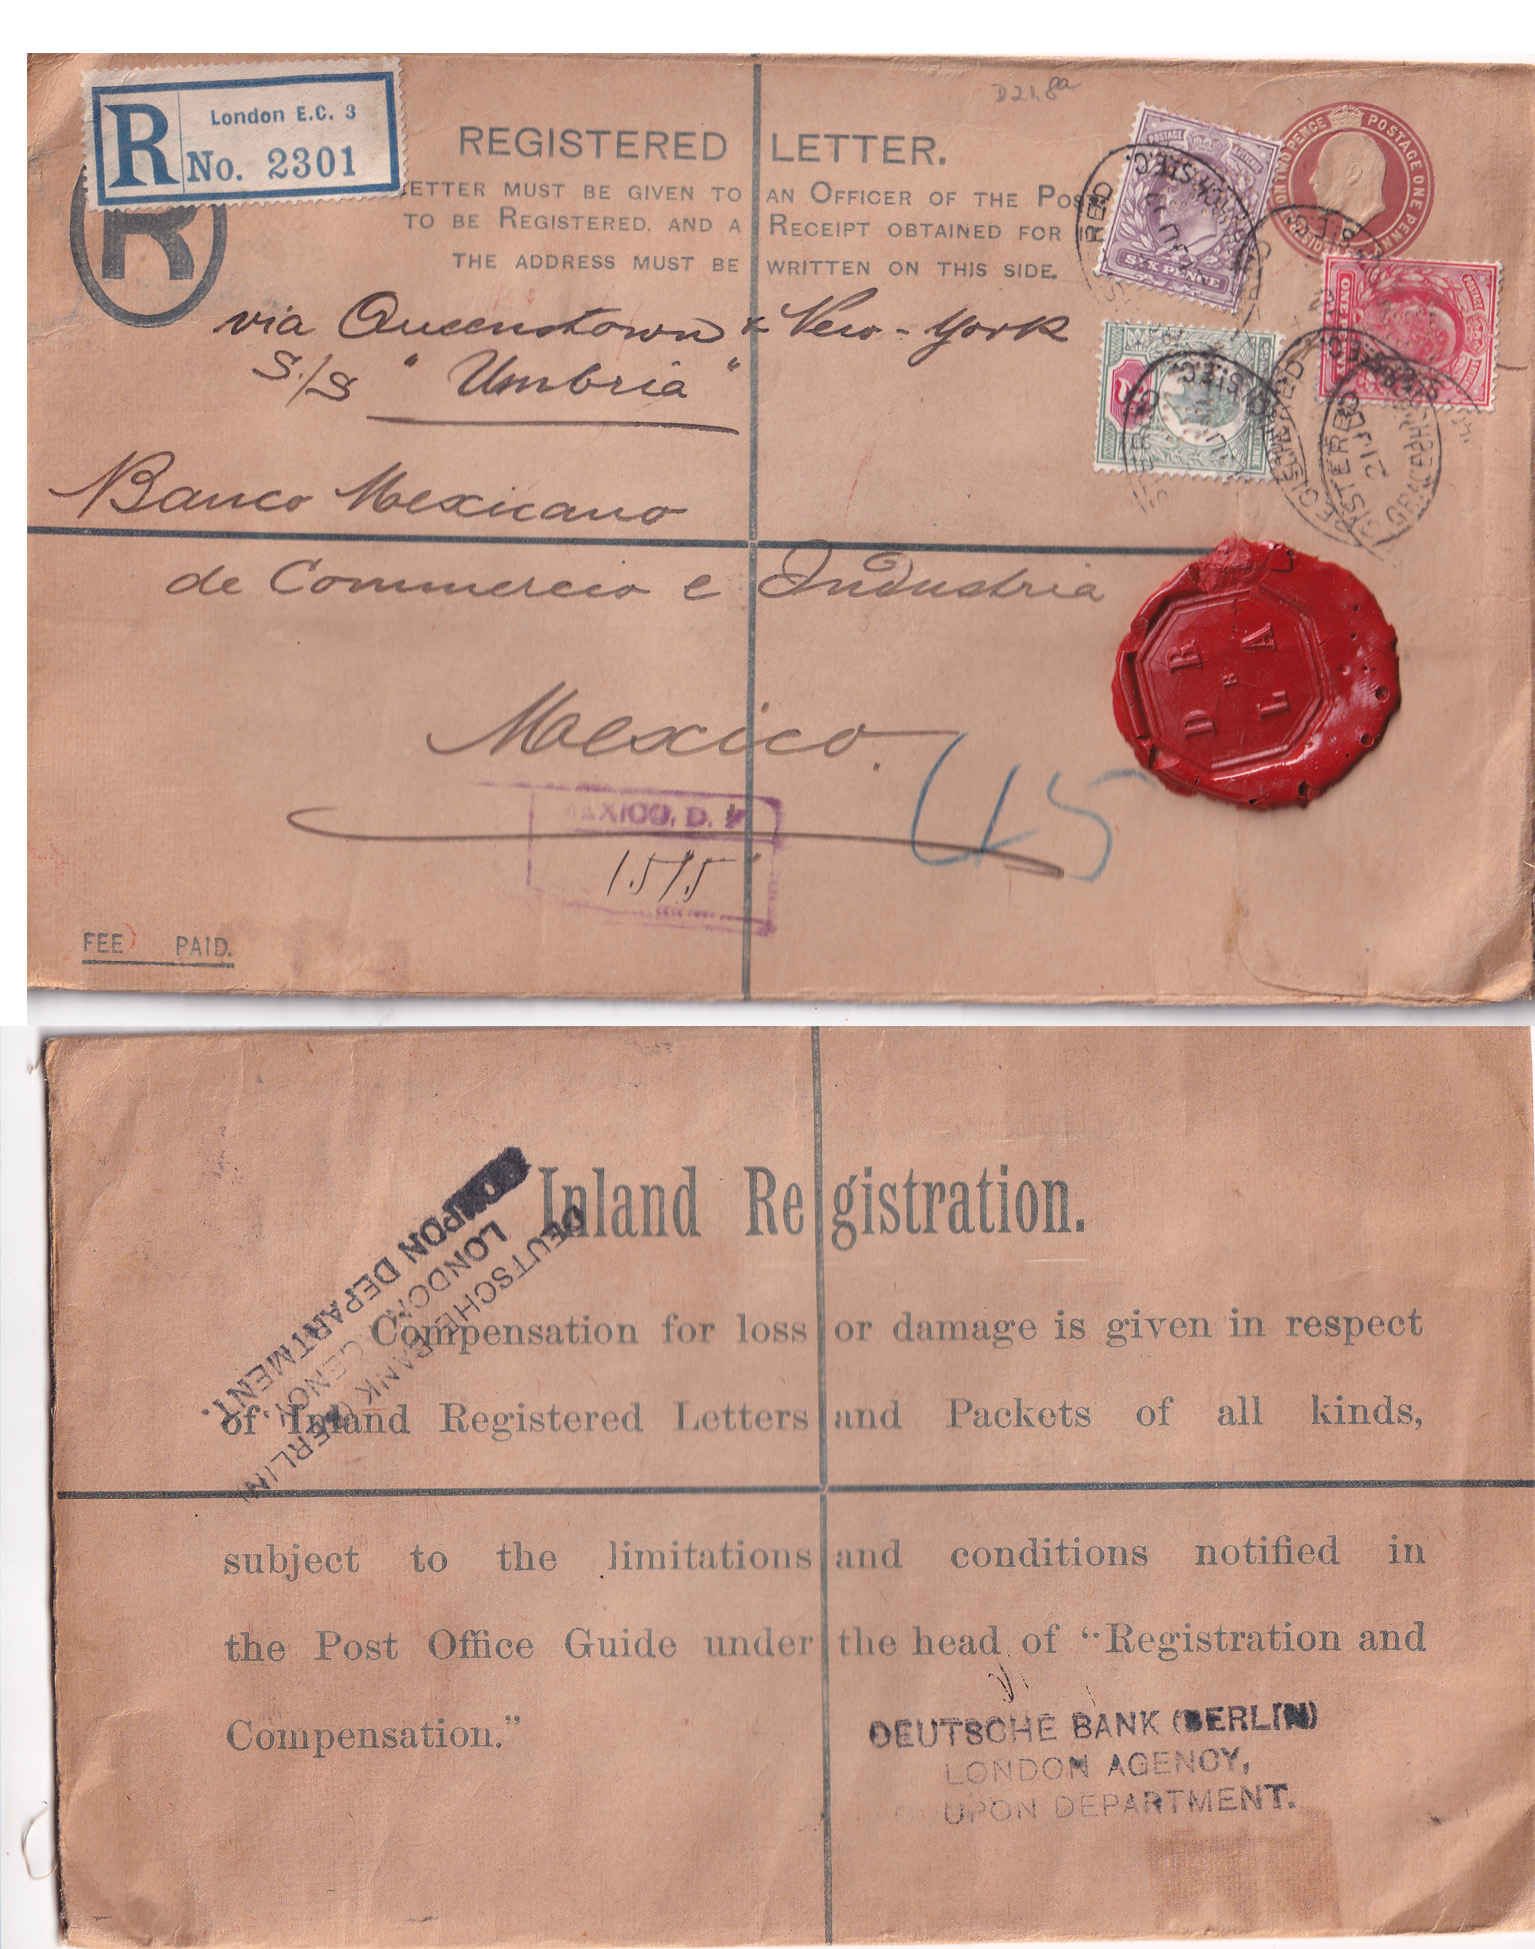 R
London E.C. 3
No. 2301
D 21.8a
REGISTERED LETTER.
LETTER MUST BE GIVEN TO AN OFFICER OF THE POST
TO BE REGISTERED, AND A RECEIPT OBTAINED FOR
THE ADDRESS MUST BE WRITTEN ON THIS SIDE.
R
POSTAGE
SIX PENCE
POSTAGE ONE PENNY
REGISTERED
21 JU
GRACECHURCH ST. E.C.
via Queenstown & New-York
S/S "Umbria"
Banco Mexicano
de Commercio e Industria
Mexico.
D R
B
L A
MEXICO, D. F.
1515
45
FEE PAID.
Inland Registration.
Compensation for loss or damage is given in respect
of Inland Registered Letters and Packets of all kinds,
subject to the limitations and conditions notified in
the Post Office Guide under the head of "Registration and
Compensation."
DEUTSCHE BANK (BERLIN)
LONDON AGENCY,
COUPON DEPARTMENT.
DEUTSCHE BANK (BERLIN)
LONDON AGENCY,
UPON DEPARTMENT.